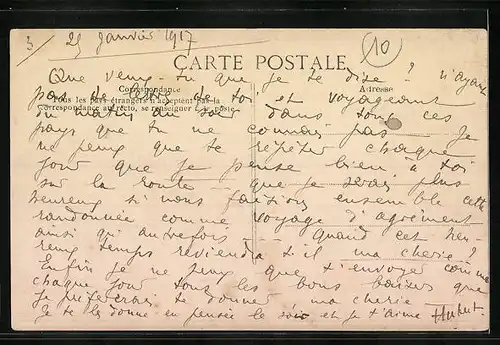 3/ 25 Janvier 1917
10
CARTE POSTALE
Que veux-tu que je te dise ? n'ayant
Correspondance
Adresse
pas de lettre de toi et voyageant
Tous les pays étrangers n'acceptent pas la
correspondance au recto, se renseigner à la poste
du matin au soir dans tous ces
pays que tu ne connais pas Je
ne peux que te répéter chaque
jour que je pense bien à toi
sur la route que je serais plus
heureux si nous faisions ensemble cette
randonnée comme voyage d'agrément
ainsi qu'autrefois Quand cet heu-
reux temps reviendra t-il ma cherie ?
Enfin je ne peux que t'envoyer comme
chaque jour tous les bons baisers que
je préfèrerais te donner ma cherie
Je te les donne en pensée le soir et je t'aime Hubert